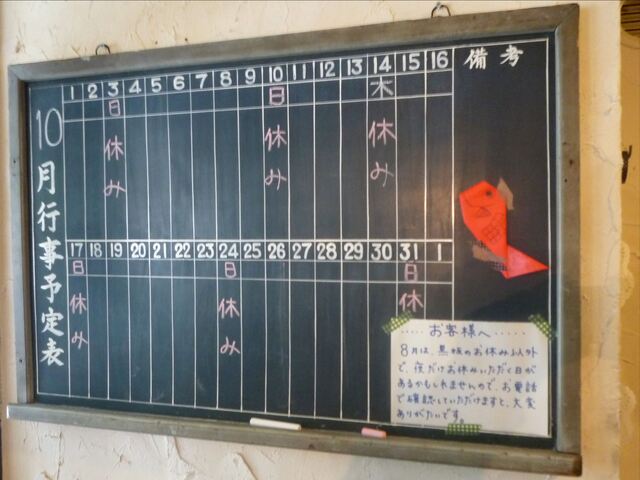 10月行事予定表
1 2 3 4 5 6 7 8 9 10 11 12 13 14 15 16 備考
日 日 木
休み 休み 休み
17 18 19 20 21 22 23 24 25 26 27 28 29 30 31 1
日 日 日
休み 休み 休
.....お客様へ.....
8月は、黒板のお休み以外
で、夜だけお休みいただく日が
あるかもしれませんので、お電話
で確認していただけますと、大変
ありがたいです。